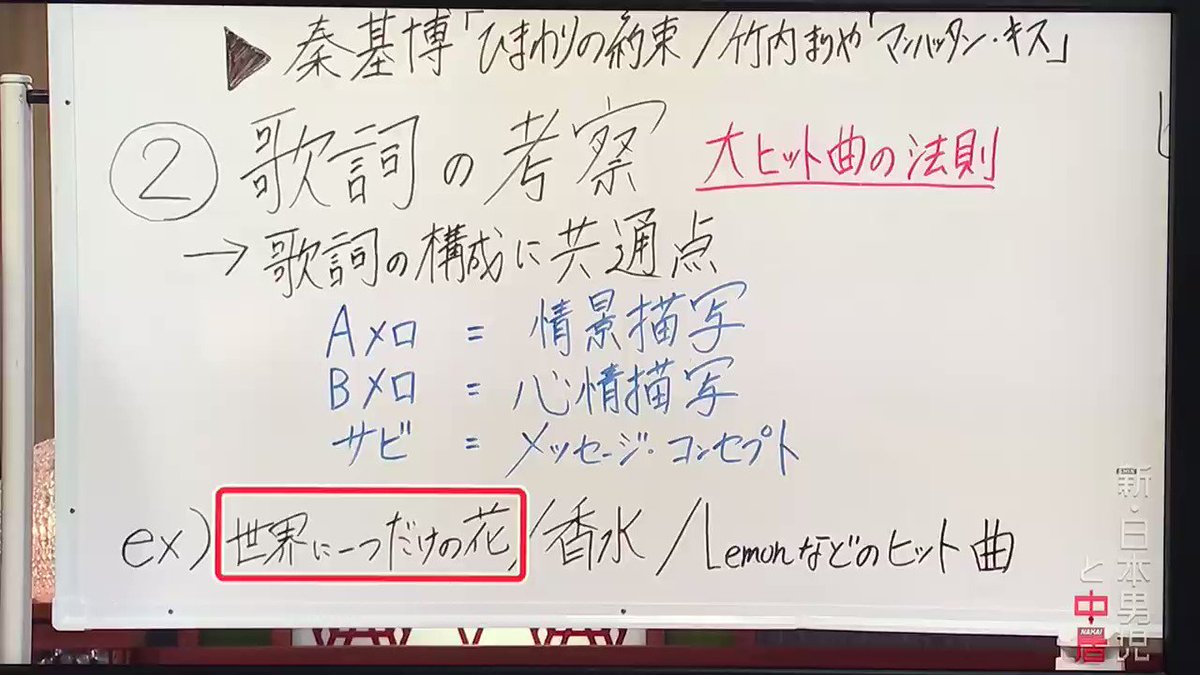 ▶秦基博「ひまわりの約束/竹内まりや「マンハッタン・キス」
② 歌詞の考察 大ヒット曲の法則
→歌詞の構成に共通点
Aメロ = 情景描写
Bメロ = 心情描写
サビ = メッセージ・コンセプト
ex) 世界に一つだけの花/香水/Lemonなどのヒット曲
新・日本男児と中居
SHIN
NAKAI